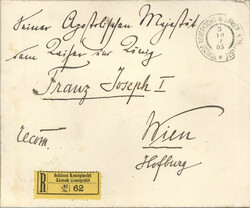 Seiner Apostolischen Majestät
dem Kaiser und König
Franz Joseph I
recom.
Wien
Hofburg
R
Schloss Konopischt
Zámek Konopiště
62